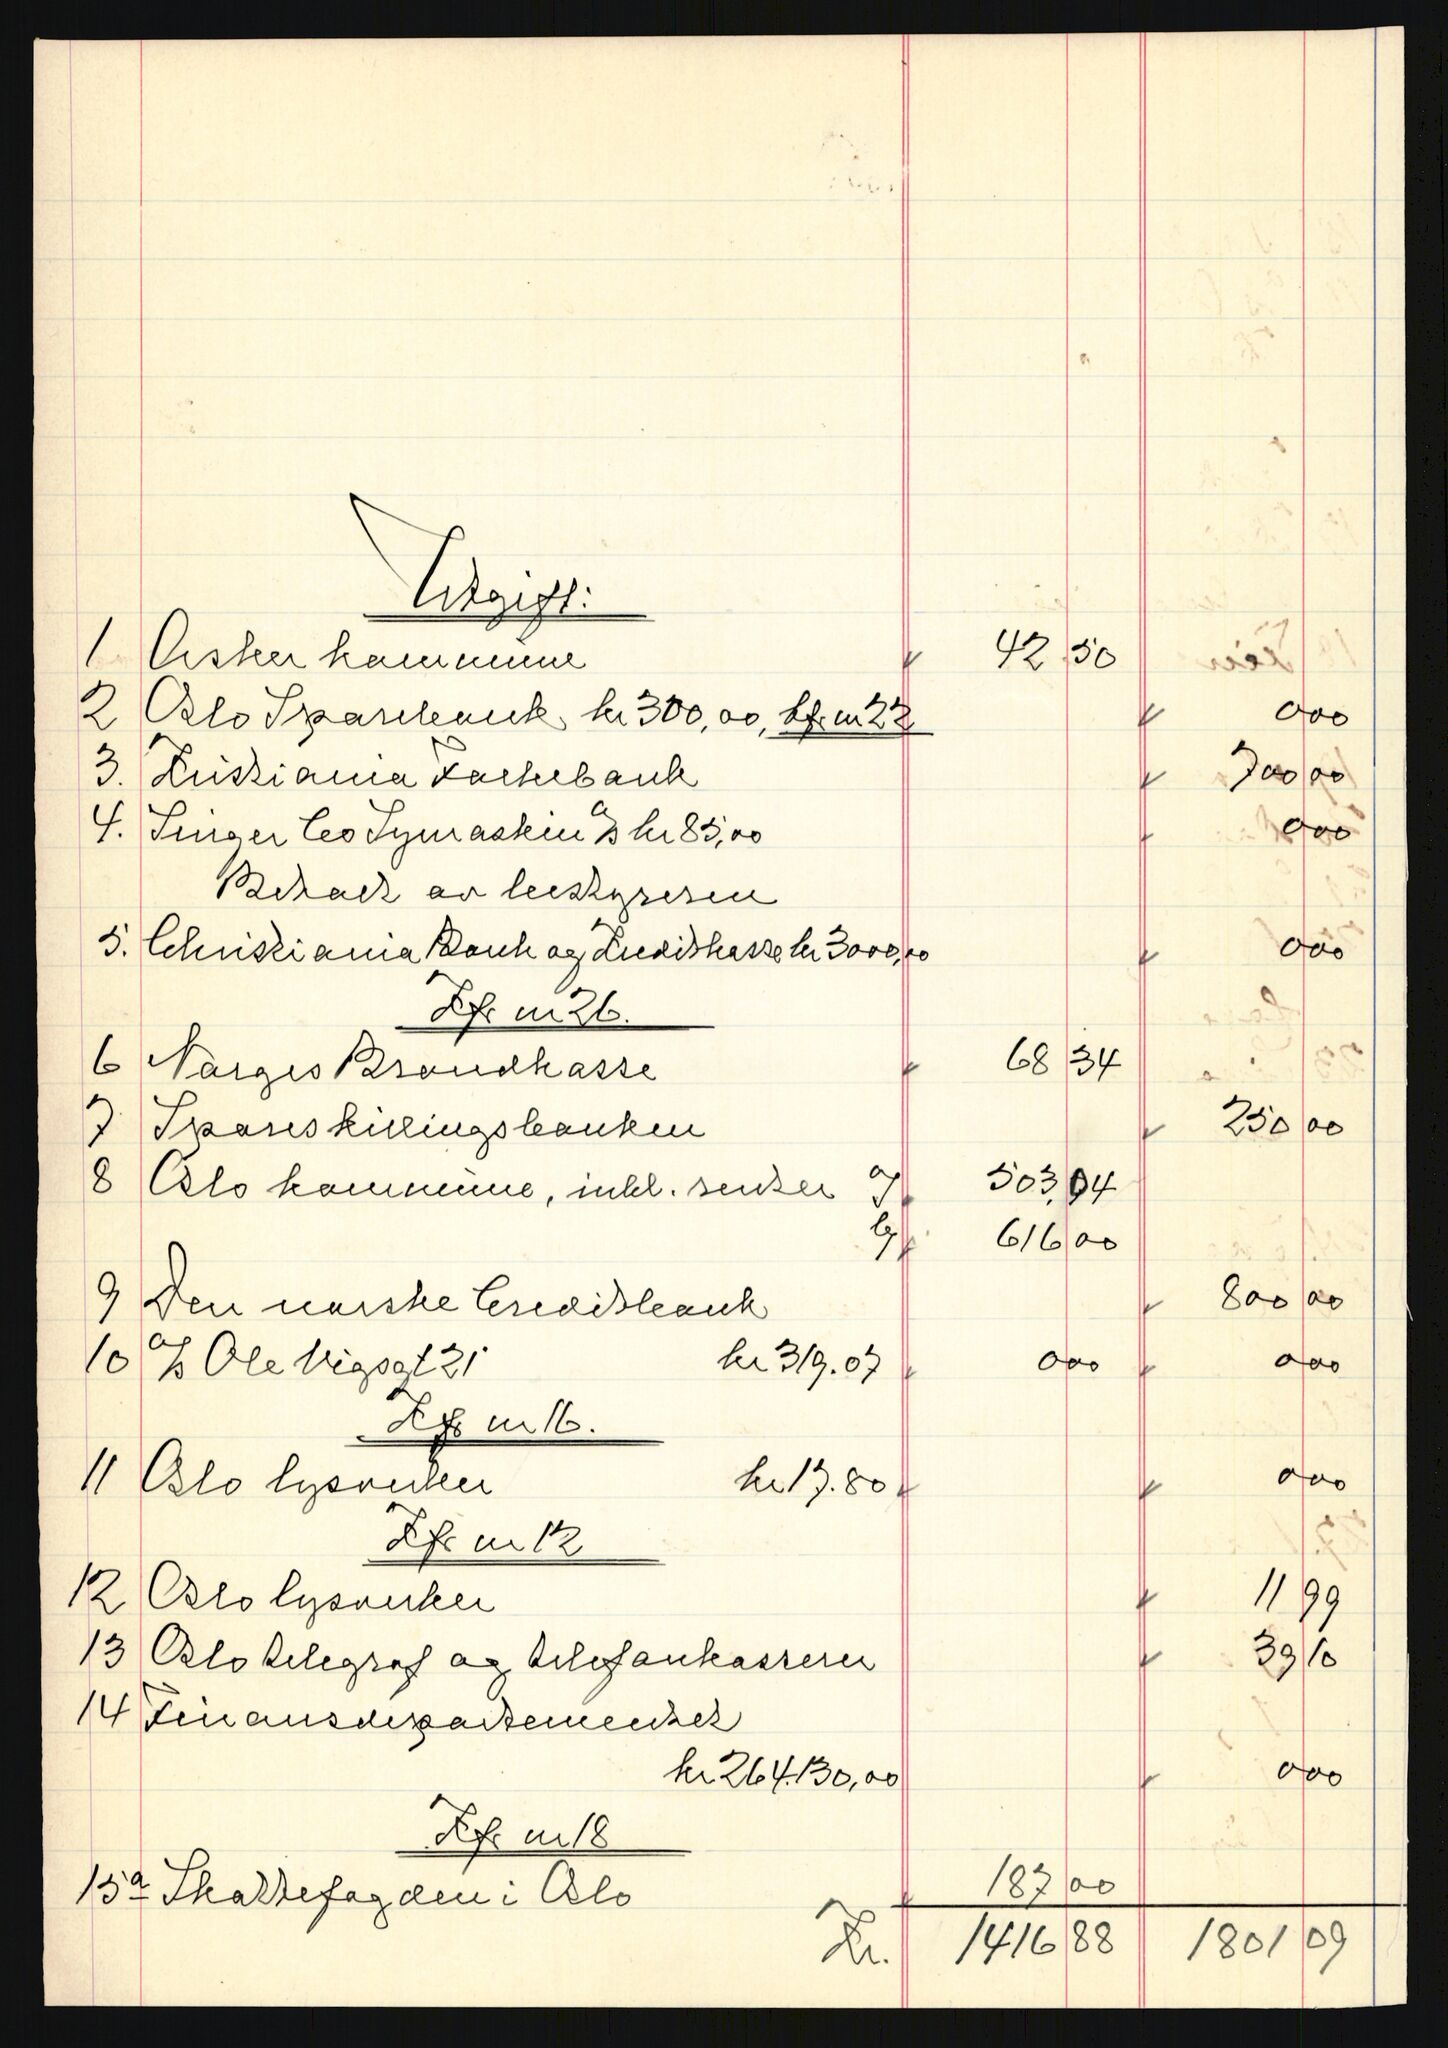 Utgift:
1 Asker kommune 42 50
2 Oslo Sparebank kr 300,00, kfr nr 22 000
3. Kristiania Folkebank 700 00
4. Singer Co Symaskin A/S kr 85,00 000
Betalt av bestyreren
5. Christiania Bank og Kreditkasse kr 3000,00 000
Kfr nr 26.
6 Norges Brandkasse 68 34
7 Spareskillingsbanken 250 00
8 Oslo kommune, inkl. renter a) 503,04
b) 616 00
9 Den norske Creditbank 800 00
10 A/S Ole Vigsgt 21 kr 319.07 000 000
Kfr nr 16.
11 Oslo lysverker kr 17.80 000
Kfr nr 12
12 Oslo lysverker 11 99
13 Oslo telegraf og telefonkasserer 39 10
14 Finansdepartementet
kr 264.130,00 000
Kfr nr 18
15a Skattefogden i Oslo 187 00
Kr. 1416 88 1801 09